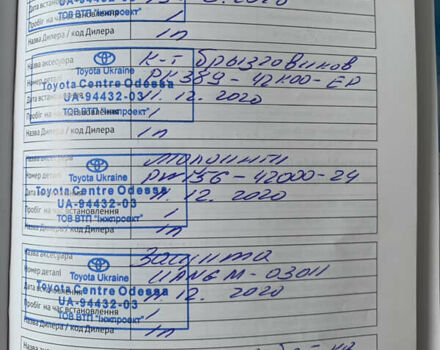 Дата встановлення 2020
Пробіг на час встановлення 1
ТОВ ВТП "Інжпроект"
Назва Дилера / код Дилера 1п
Назва аксесуара К-т брызговиков
Номер деталі PK389-42K00-EP
Toyota Ukraine
Toyota Centre Odessa
Дата встановлення 11.12.2020
UA-94432-03
Пробіг на час встановлення 1
ТОВ ВТП "Інжпроект"
Назва Дилера / код Дилера 1п
Назва аксесуара
Номер деталі PW156-42000-24
Toyota Ukraine
Toyota Centre Odessa
Дата встановлення 11.12.2020
UA-94432-03
Пробіг на час встановлення 1
ТОВ ВТП "Інжпроект"
Назва Дилера / код Дилера 1п
Назва аксесуара Защита
Номер деталі UANGM-03011
Toyota Ukraine
Toyota Centre Odessa
Дата встановлення 11.12.2020
UA-94432-03
Пробіг на час встановлення 1
ТОВ ВТП "Інжпроект"
Назва Дилера / код Дилера 1п
Назва аксесуара